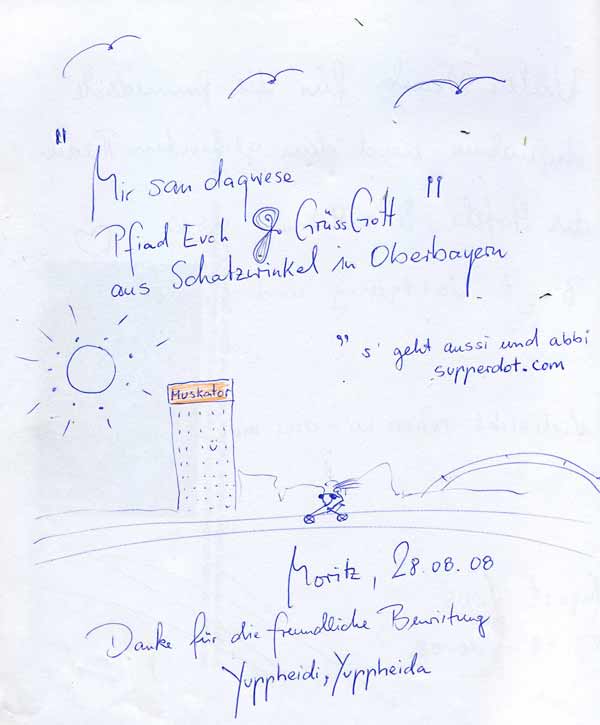 " Mir san dagwese
Pfiad Euch & GrüssGott "
aus Schatzwinkel in Oberbayern
" s' geht aussi und abbi
supperdot.com
Muskator
Moritz, 28.08.08
Danke für die freundliche Bewirtung
Yuppheidi, Yuppheida